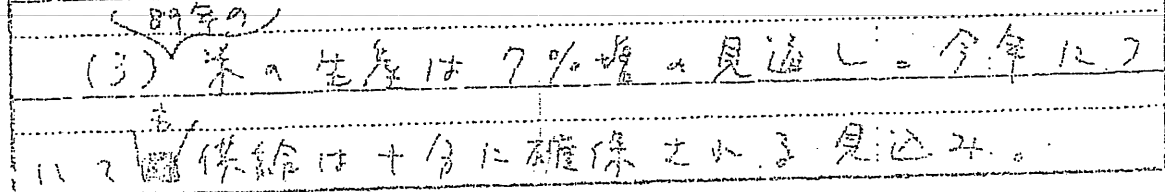 89年の
(3) 米の生産は7%増の見通し。今年につ
いても供給は十分に確保される見込み。